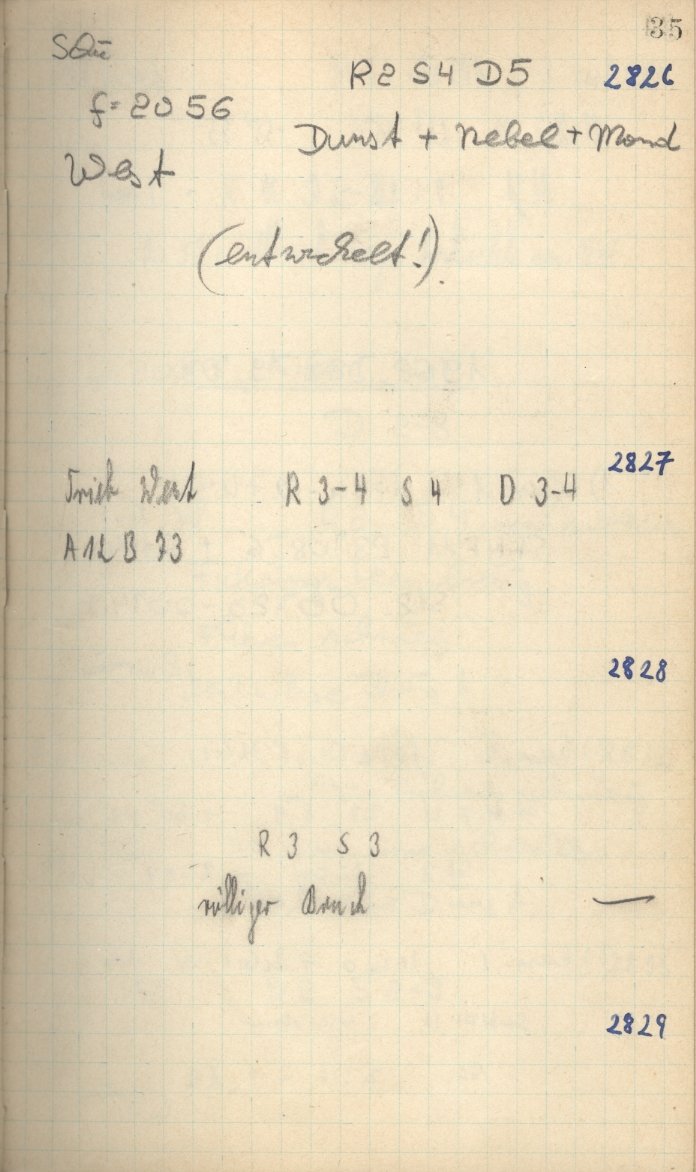 35
R2 S4 D5 2826
f = 2056
Dunst + Nebel + Mond
West
(entwickelt!).
2827
Trieb West R 3-4 S 4 D 3-4
A12 B 33
2828
R 3 S 3
—
2829